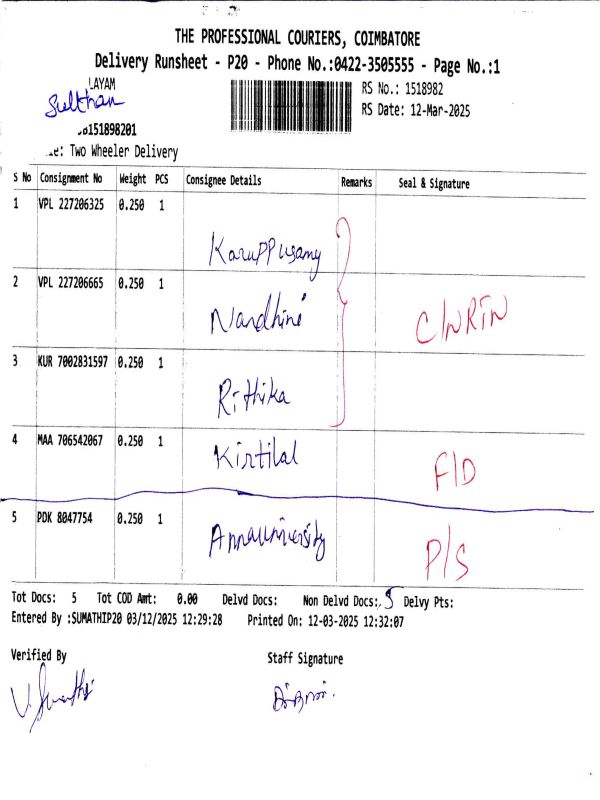 THE PROFESSIONAL COURIERS, COIMBATORE
Delivery Runsheet - P20 - Phone No.:0422-3505555 - Page No.:1
LAYAM
Sulthan
151898201
RS No.: 1518982
RS Date: 12-Mar-2025
: Two Wheeler Delivery
S No Consignment No Weight PCS Consignee Details Remarks Seal & Signature
1 VPL 227206325 0.250 1 Karuppusamy
2 VPL 227206665 0.250 1 Nandhini C/NRTN
3 KUR 7002831597 0.250 1 Rithika
4 MAA 706542067 0.250 1 Kirtilal F/D
5 PDK 8047754 0.250 1 Annauniversity P/S
Tot Docs: 5 Tot COD Amt: 0.00 Delvd Docs: Non Delvd Docs: 5 Delvy Pts:
Entered By :SUMATHIP20 03/12/2025 12:29:28 Printed On: 12-03-2025 12:32:07
Verified By Staff Signature